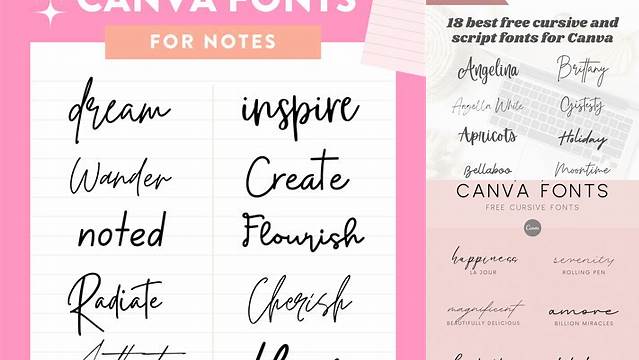 CANVA FONTS
FOR NOTES
dream
inspire
Wander
Create
noted
Flourish
Radiate
Cherish
18 best free cursive and
script fonts for Canva
Angelina
Brittany
Angella White
Apricots
Holiday
Bellaboo
Moontime
CANVA FONTS
FREE CURSIVE FONTS
Canva
happiness
serenity
LA JOUR
ROLLING PEN
magnificent
amore
BEAUTIFULLY DELICIOUS
BILLION MIRACLES